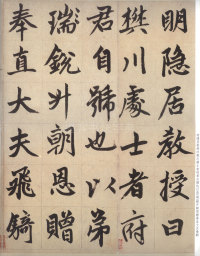 明隐居教授曰
樊川處士者府
君自號也以弟
瑞銳廾朝恩贈
奉直大夫飛錡